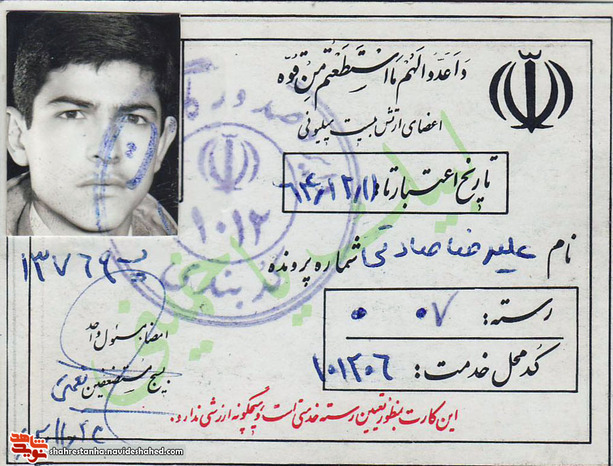 واعدوا لهم ما استطعتم من قوه
اعضای ارتش بیست میلیونی
تاریخ اعتبار تا ۶۴/۱۲/۱
نام علیرضا صادقی شماره پرونده
۱۳۷۶۹
رسته: ۰۷ ۰
کد محل خدمت: ۱۰۱۲۰۶
امضاء مسئول واحد
بسیج مستضعفین
این کارت بمنظور تعیین رسته خدمتی است و هیچگونه ارزشی ندارد.
صدور
۱۰۱۲
کد بندی
نوید شاهد
shahrestanha.navideshahed.com